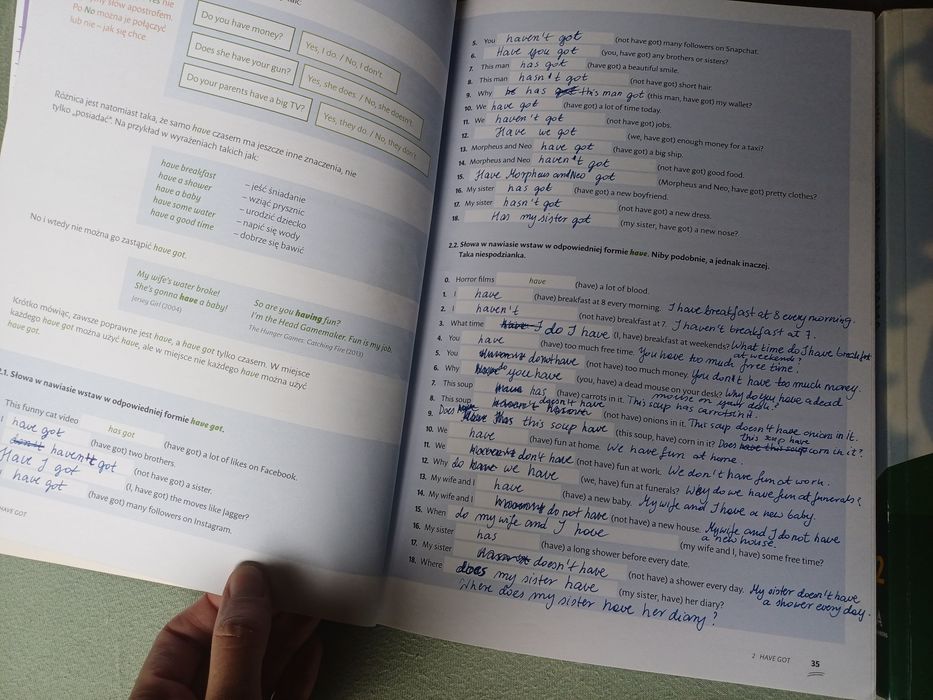 nie
słów apostrofem.
Po No można je połączyć
lub nie – jak się chce.
Do you have money?
Yes, I do. / No, I don't.
Does she have your gun?
Yes, she does. / No, she doesn't.
Do your parents have a big TV?
Yes, they do. / No, they don't.
Różnica jest natomiast taka, że samo have czasem ma jeszcze inne znaczenia, nie
tylko „posiadać”. Na przykład w wyrażeniach takich jak:
have breakfast – jeść śniadanie
have a shower – wziąć prysznic
have a baby – urodzić dziecko
have some water – napić się wody
have a good time – dobrze się bawić
No i wtedy nie można go zastąpić have got.
My wife's water broke!
She's gonna have a baby!
Jersey Girl (2004)
So are you having fun?
I'm the Head Gamemaker. Fun is my job.
The Hunger Games: Catching Fire (2013)
Krótko mówiąc, zawsze poprawne jest have, a have got tylko czasem. W miejsce
każdego have got można użyć have, ale w miejsce nie każdego have można użyć
have got.
2.1. Słowa w nawiasie wstaw w odpowiedniej formie have got.
This funny cat video has got (have got) a lot of likes on Facebook.
I have got (have got) two brothers.
haven't got (not have got) a sister.
Have I got (I, have got) the moves like Jagger?
I have got (have got) many followers on Instagram.
HAVE GOT
5. You haven't got (not have got) many followers on Snapchat.
6. Have you got (you, have got) any brothers or sisters?
7. This man has got (have got) a beautiful smile.
8. This man hasn't got (not have got) short hair.
9. Why has this man got (this man, have got) my wallet?
10. We have got (have got) a lot of time today.
11. We haven't got (not have got) jobs.
12. Have we got (we, have got) enough money for a taxi?
13. Morpheus and Neo have got (have got) a big ship.
14. Morpheus and Neo haven't got (not have got) good food.
15. Have Morpheus and Neo got (Morpheus and Neo, have got) pretty clothes?
16. My sister has got (have got) a new boyfriend.
17. My sister hasn't got (not have got) a new dress.
18. Has my sister got (my sister, have got) a new nose?
2.2. Słowa w nawiasie wstaw w odpowiedniej formie have. Niby podobnie, a jednak inaczej.
Taka niespodzianka.
0. Horror films have (have) a lot of blood.
1. I have (have) breakfast at 8 every morning. I have breakfast at 8 every morning.
2. I haven't (not have) breakfast at 7. I haven't breakfast at 7.
3. What time do I have (I, have) breakfast at weekends? What time do I have breakfast
at weekends?
4. You have (have) too much free time. You have too much free time.
5. You do not have (not have) too much money. You don't have too much money.
6. Why do you have (you, have) a dead mouse on your desk? Why do you have a dead
mouse on your desk?
7. This soup has (have) carrots in it. This soup has carrots in it.
8. This soup doesn't have (not have) onions in it. This soup doesn't have onions in it.
9. Does this soup have (this soup, have) corn in it? Does this soup have corn in it?
10. We have (have) fun at home. We have fun at home.
11. We don't have (not have) fun at work. We don't have fun at work.
12. Why do we have (we, have) fun at funerals? Why do we have fun at funerals?
13. My wife and I have (have) a new baby. My wife and I have a new baby.
14. My wife and I do not have (not have) a new house. My wife and I do not have
a new house.
15. When do my wife and I have (my wife and I, have) some free time?
16. My sister has (have) a long shower before every date.
17. My sister doesn't have (not have) a shower every day. My sister doesn't have
a shower every day.
18. Where does my sister have (my sister, have) her diary?
Where does my sister have her diary?
2 HAVE GOT 35